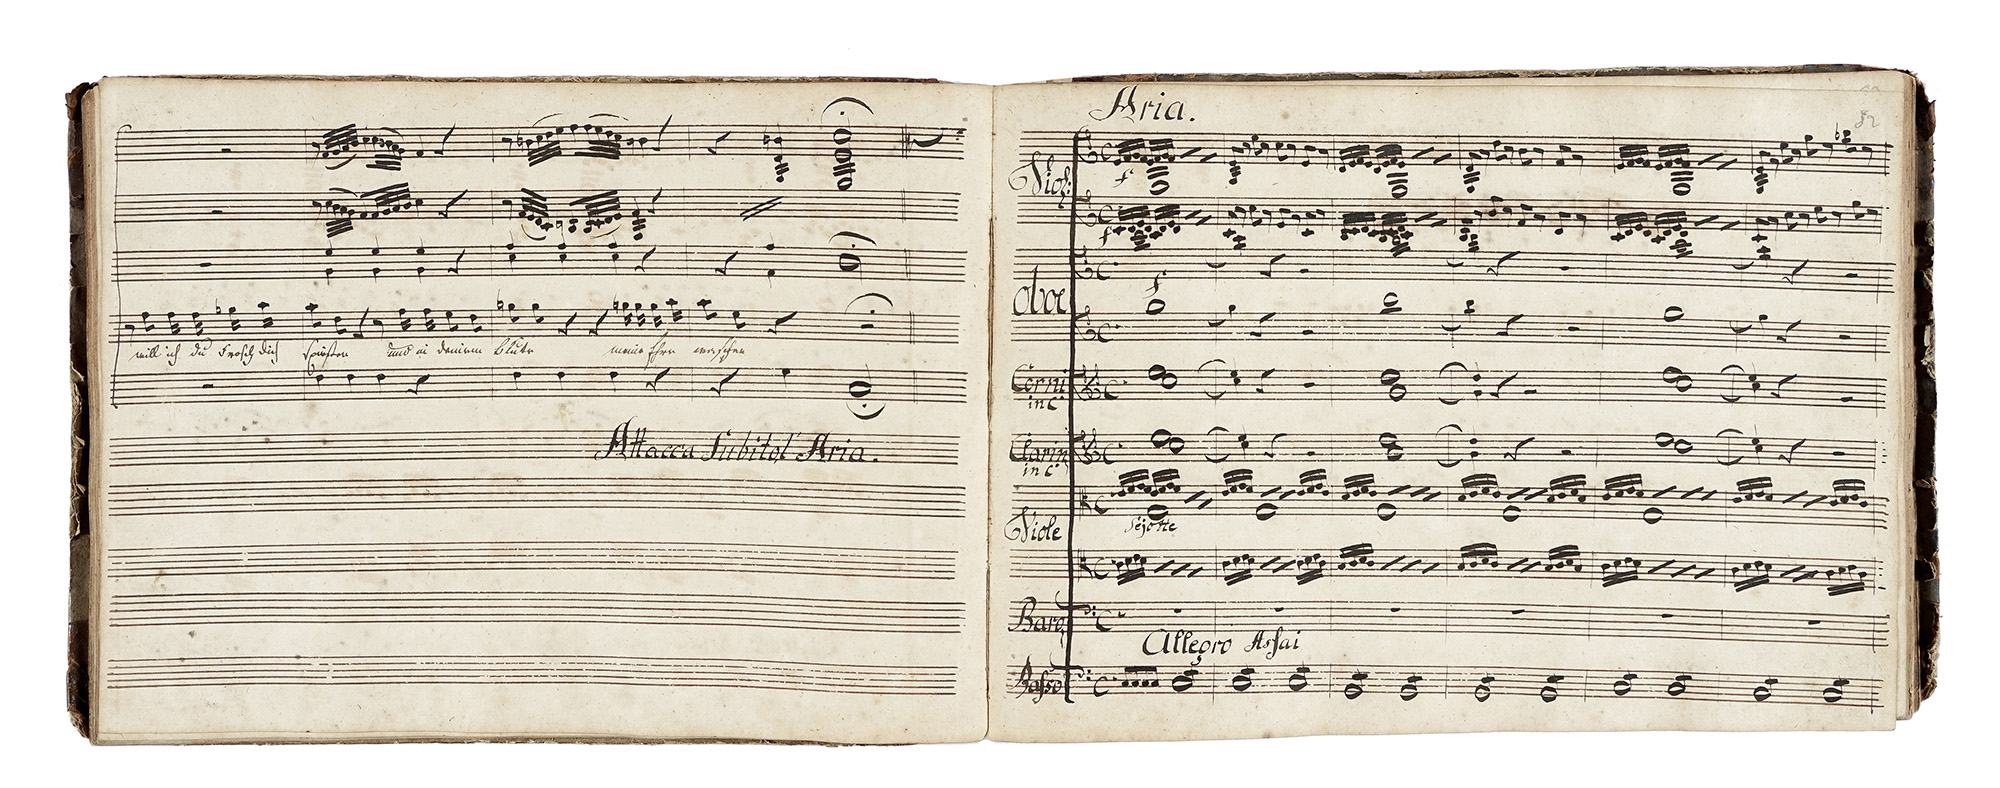 will ich du Frosch dich spießen und in deinem Blute meine Ehre waschen
Attacca Subito l'Aria.
Aria.
82
Viol:
f
f
oboe
f
Corni
in C
Clarin
in C
Viole
Bar:
Allegro Assai
Basso